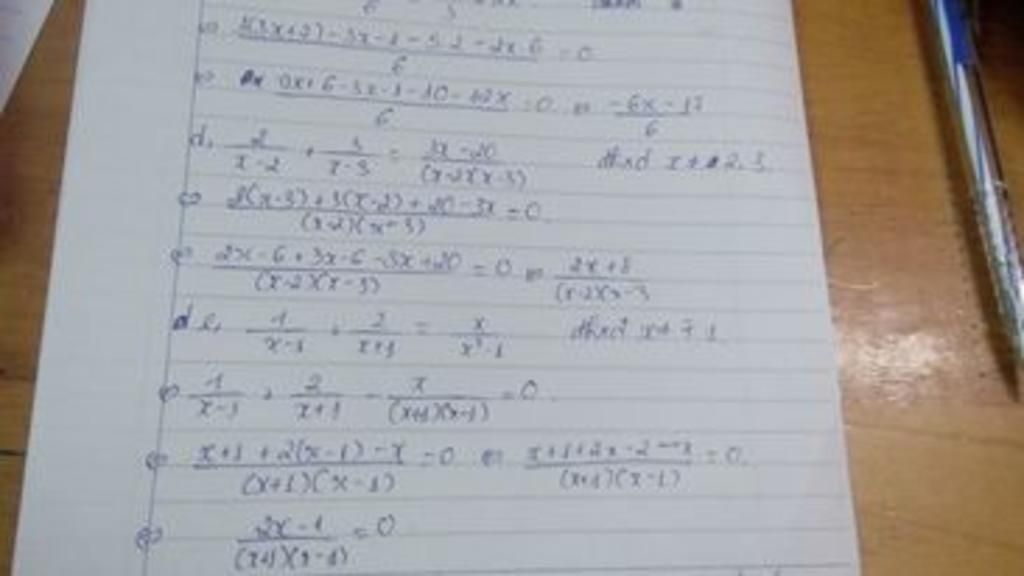 ⇔ 2(3x+2) - 3x - 1 - 5.2 - 2x.6 / 6 = 0
⇔ 6x + 6 - 3x - 1 - 10 - 12x / 6 = 0 ⇔ -6x - 17 / 6
d, 2/(x-2) + 3/(x-3) = (3x-20)/((x-2)(x-3)) x ≠ 2, 3
⇔ (2(x-3) + 3(x-2) + 20 - 3x)/((x-2)(x-3)) = 0
⇔ (2x - 6 + 3x - 6 - 3x + 20)/((x-2)(x-3)) = 0 ⇔ (2x+8)/((x-2)(x-3
e, 1/(x-1) + 2/(x+1) = x/(x²-1) x ≠ ∓1
⇔ 1/(x-1) + 2/(x+1) - x/((x+1)(x-1)) = 0
⇔ (x+1 + 2(x-1) - x)/((x+1)(x-1)) = 0 ⇔ (x+1+2x-2-x)/((x+1)(x-1)) = 0
⇔ (2x-1)/((x+1)(x-1)) = 0